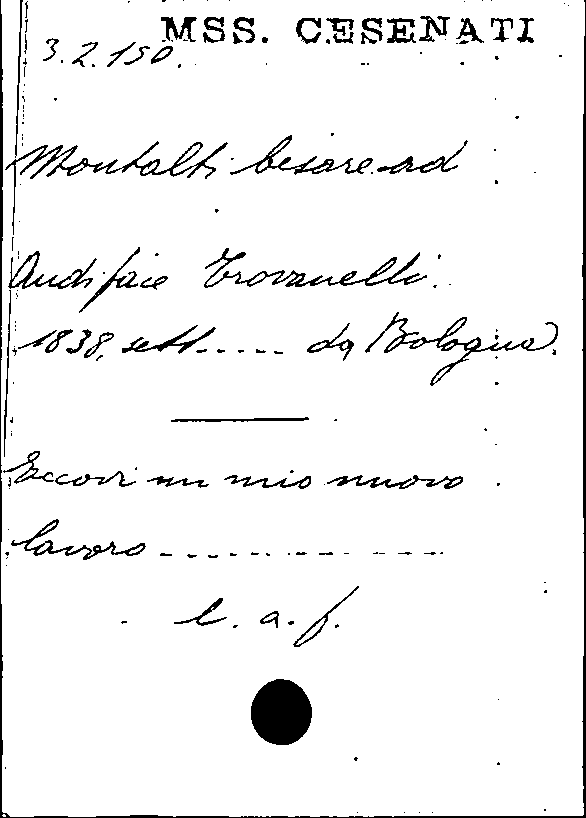 MSS. CESENATI
3.2.150.
Montalti Cesare ad
Audiface Trovanelli.
1838, sett..... da Bologna.
Eccovi un mio nuovo
lavoro - - - - - - - - - - - -
l. a. f.